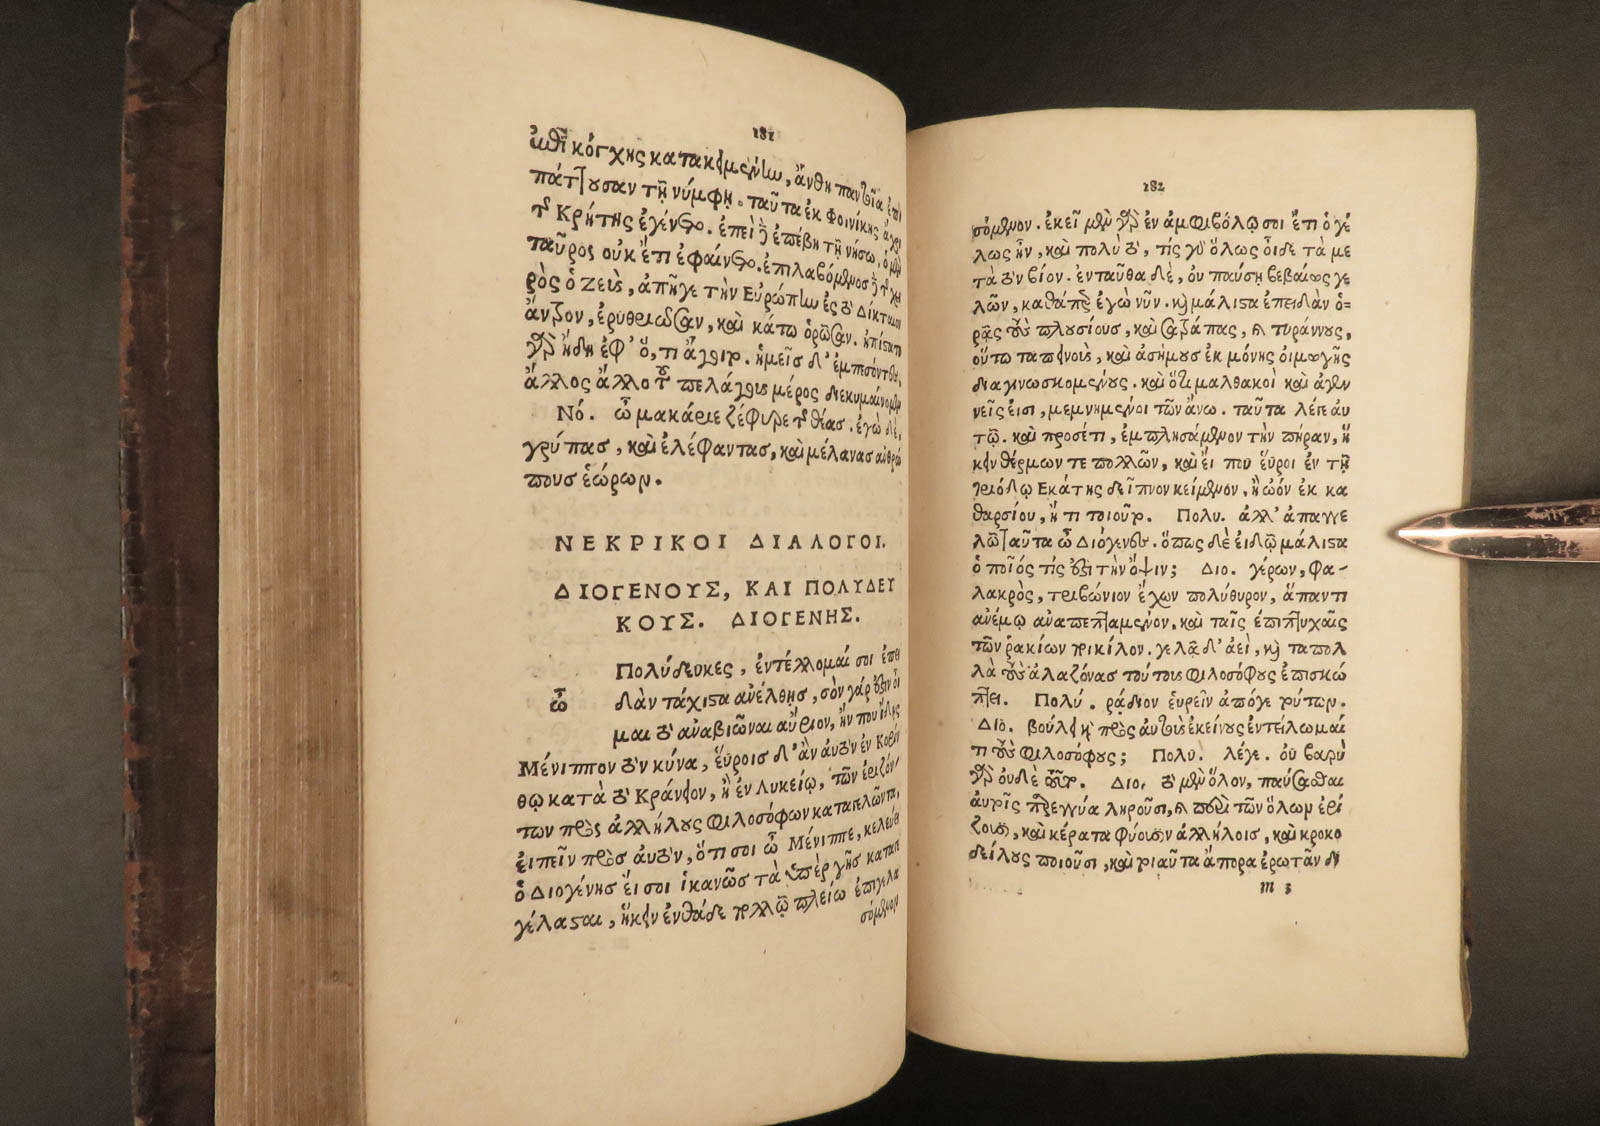 181
ἐπὶ κόγχης κατακειμένην, ἄνθη παντοῖα ἐπι
πάττουσαν τῇ νύμφῃ. ταῦτα ἐκ Φοινίκης ἄχρι
τῆς Κρήτης ἐγένετο. ἐπεὶ δὲ ἐπέβη τῇ νήσῳ, ὁ μὲν
ταῦρος οὐκ ἔτι ἐφαίνετο. ἐπιλαβόμενος δὲ τῆς χει
ρὸς ὁ Ζεὺς, ἀπῆγε τὴν Εὐρώπην ἐς τὸ Δικταῖον
ἄντρον, ἐρυθριῶσαν, καὶ κάτω ὁρῶσαν. ἠπίστατο
γὰρ ἤδη ἐφ' ὅ, τι ἄγοιτο. ἡμεῖς δ' ἐμπεσόντες,
ἄλλος ἄλλο τοῦ πελάγους μέρος διεκυμαίνομεν
Νό. ὦ μακάριε ζέφυρε τῆς θέας. ἐγὼ δὲ,
γρύπας, καὶ ἐλέφαντας, καὶ μέλανας ἀνθρώ
πους ἑώρων.
ΝΕΚΡΙΚΟΙ ΔΙΑΛΟΓΟΙ.
ΔΙΟΓΕΝΟΥΣ, ΚΑΙ ΠΟΛΥΔΕΥ
ΚΟΥΣ. ΔΙΟΓΕΝΗΣ.
ὦ Πολύδευκες, ἐντέλλομαί σοι ἐπει
δὰν τάχιστα ἀνέλθῃς, σὸν γάρ ἐστιν οἶ
μαι τὸ ἀναβιῶναι αὔριον, ἤν που ἴδῃς
Μένιππον τὸν κύνα, εὕροις δ' ἂν αὐτὸν ἐν Κορίν
θῳ κατὰ τὸ Κράνειον, ἢ ἐν Λυκείῳ, τῶν ἐριζόν
των πρὸς ἀλλήλους φιλοσόφων καταγελῶντα,
εἰπεῖν πρὸς αὐτὸν, ὅτι σοι ὦ Μένιππε, κελεύει
ὁ Διογένης εἴ σοι ἱκανῶς τὰ ὑπὲρ γῆς καταγε
γέλασται, ἥκειν ἐνθάδε πολλῷ πλείω ἐπιγελα
σόμενον
182
σόμενον. ἐκεῖ μὲν γὰρ ἐν ἀμφιβόλῳ σοι ἔτι ὁ γέ
λως ἦν, καὶ πολὺ τὸ, τίς γὰρ ὅλως οἶδε τὰ με
τὰ τὸν βίον. ἐνταῦθα δὲ, οὐ παύσῃ βεβαίως γε
λῶν, καθάπερ ἐγὼ νῦν. καὶ μάλιστα ἐπειδὰν ὁ-
ρᾷς τοὺς πλουσίους, καὶ σατράπας, καὶ τυράννους,
οὕτω ταπεινοὺς, καὶ ἀσήμους ἐκ μόνης οἰμωγῆς
διαγινωσκομένους. καὶ ὅτι μαλθακοὶ καὶ ἀγεν
νεῖς εἰσι, μεμνημένοι τῶν ἄνω. ταῦτα λέγε αὐ
τῷ. καὶ προσέτι, ἐμπλησάμενον τὴν πήραν, ἥ
κειν θέρμων τε πολλῶν, καὶ εἴ που εὕροι ἐν τῇ
τριόδῳ Ἑκάτης δεῖπνον κείμενον, ἢ ὠὸν ἐκ κα
θαρσίου, ἤ τι τοιοῦτον. Πολυ. ἀλλ' ἀπαγγε
λῶ ταῦτα ὦ Διόγενες. ὅπως δὲ εἰδῶ μάλιστα
ὁποῖός τίς ἐστι τὴν ὄψιν; Διο. γέρων, φα-
λακρὸς, τριβώνιον ἔχων πολύθυρον, ἅπαντι
ἀνέμῳ ἀναπεπταμένον, καὶ ταῖς ἐπιπτυχαῖς
τῶν ῥακίων ποικίλον. γελᾷ δ' ἀεὶ, καὶ τὰ πολ
λὰ τοὺς ἀλαζόνας τούτους φιλοσόφους ἐπισκώ
πτει. Πολύ. ῥᾴδιον εὑρεῖν ἀπό γε τούτων.
Διο. βούλει καὶ πρὸς αὐτοὺς ἐκείνους ἐντείλωμαί
τι τοὺς φιλοσόφους; Πολυ. λέγε. οὐ βαρὺ
γὰρ οὐδὲ τοῦτο. Διο. τὸ μὲν ὅλον, παύσασθαι
αὐτοῖς παρεγγύα ληροῦσι, καὶ περὶ τῶν ὅλων ἐρί
ζουσι, καὶ κέρατα φύουσιν ἀλλήλοις, καὶ κροκο
δείλους ποιοῦσι, καὶ τοιαῦτα ἄπορα ἐρωτᾶν δι
m 3